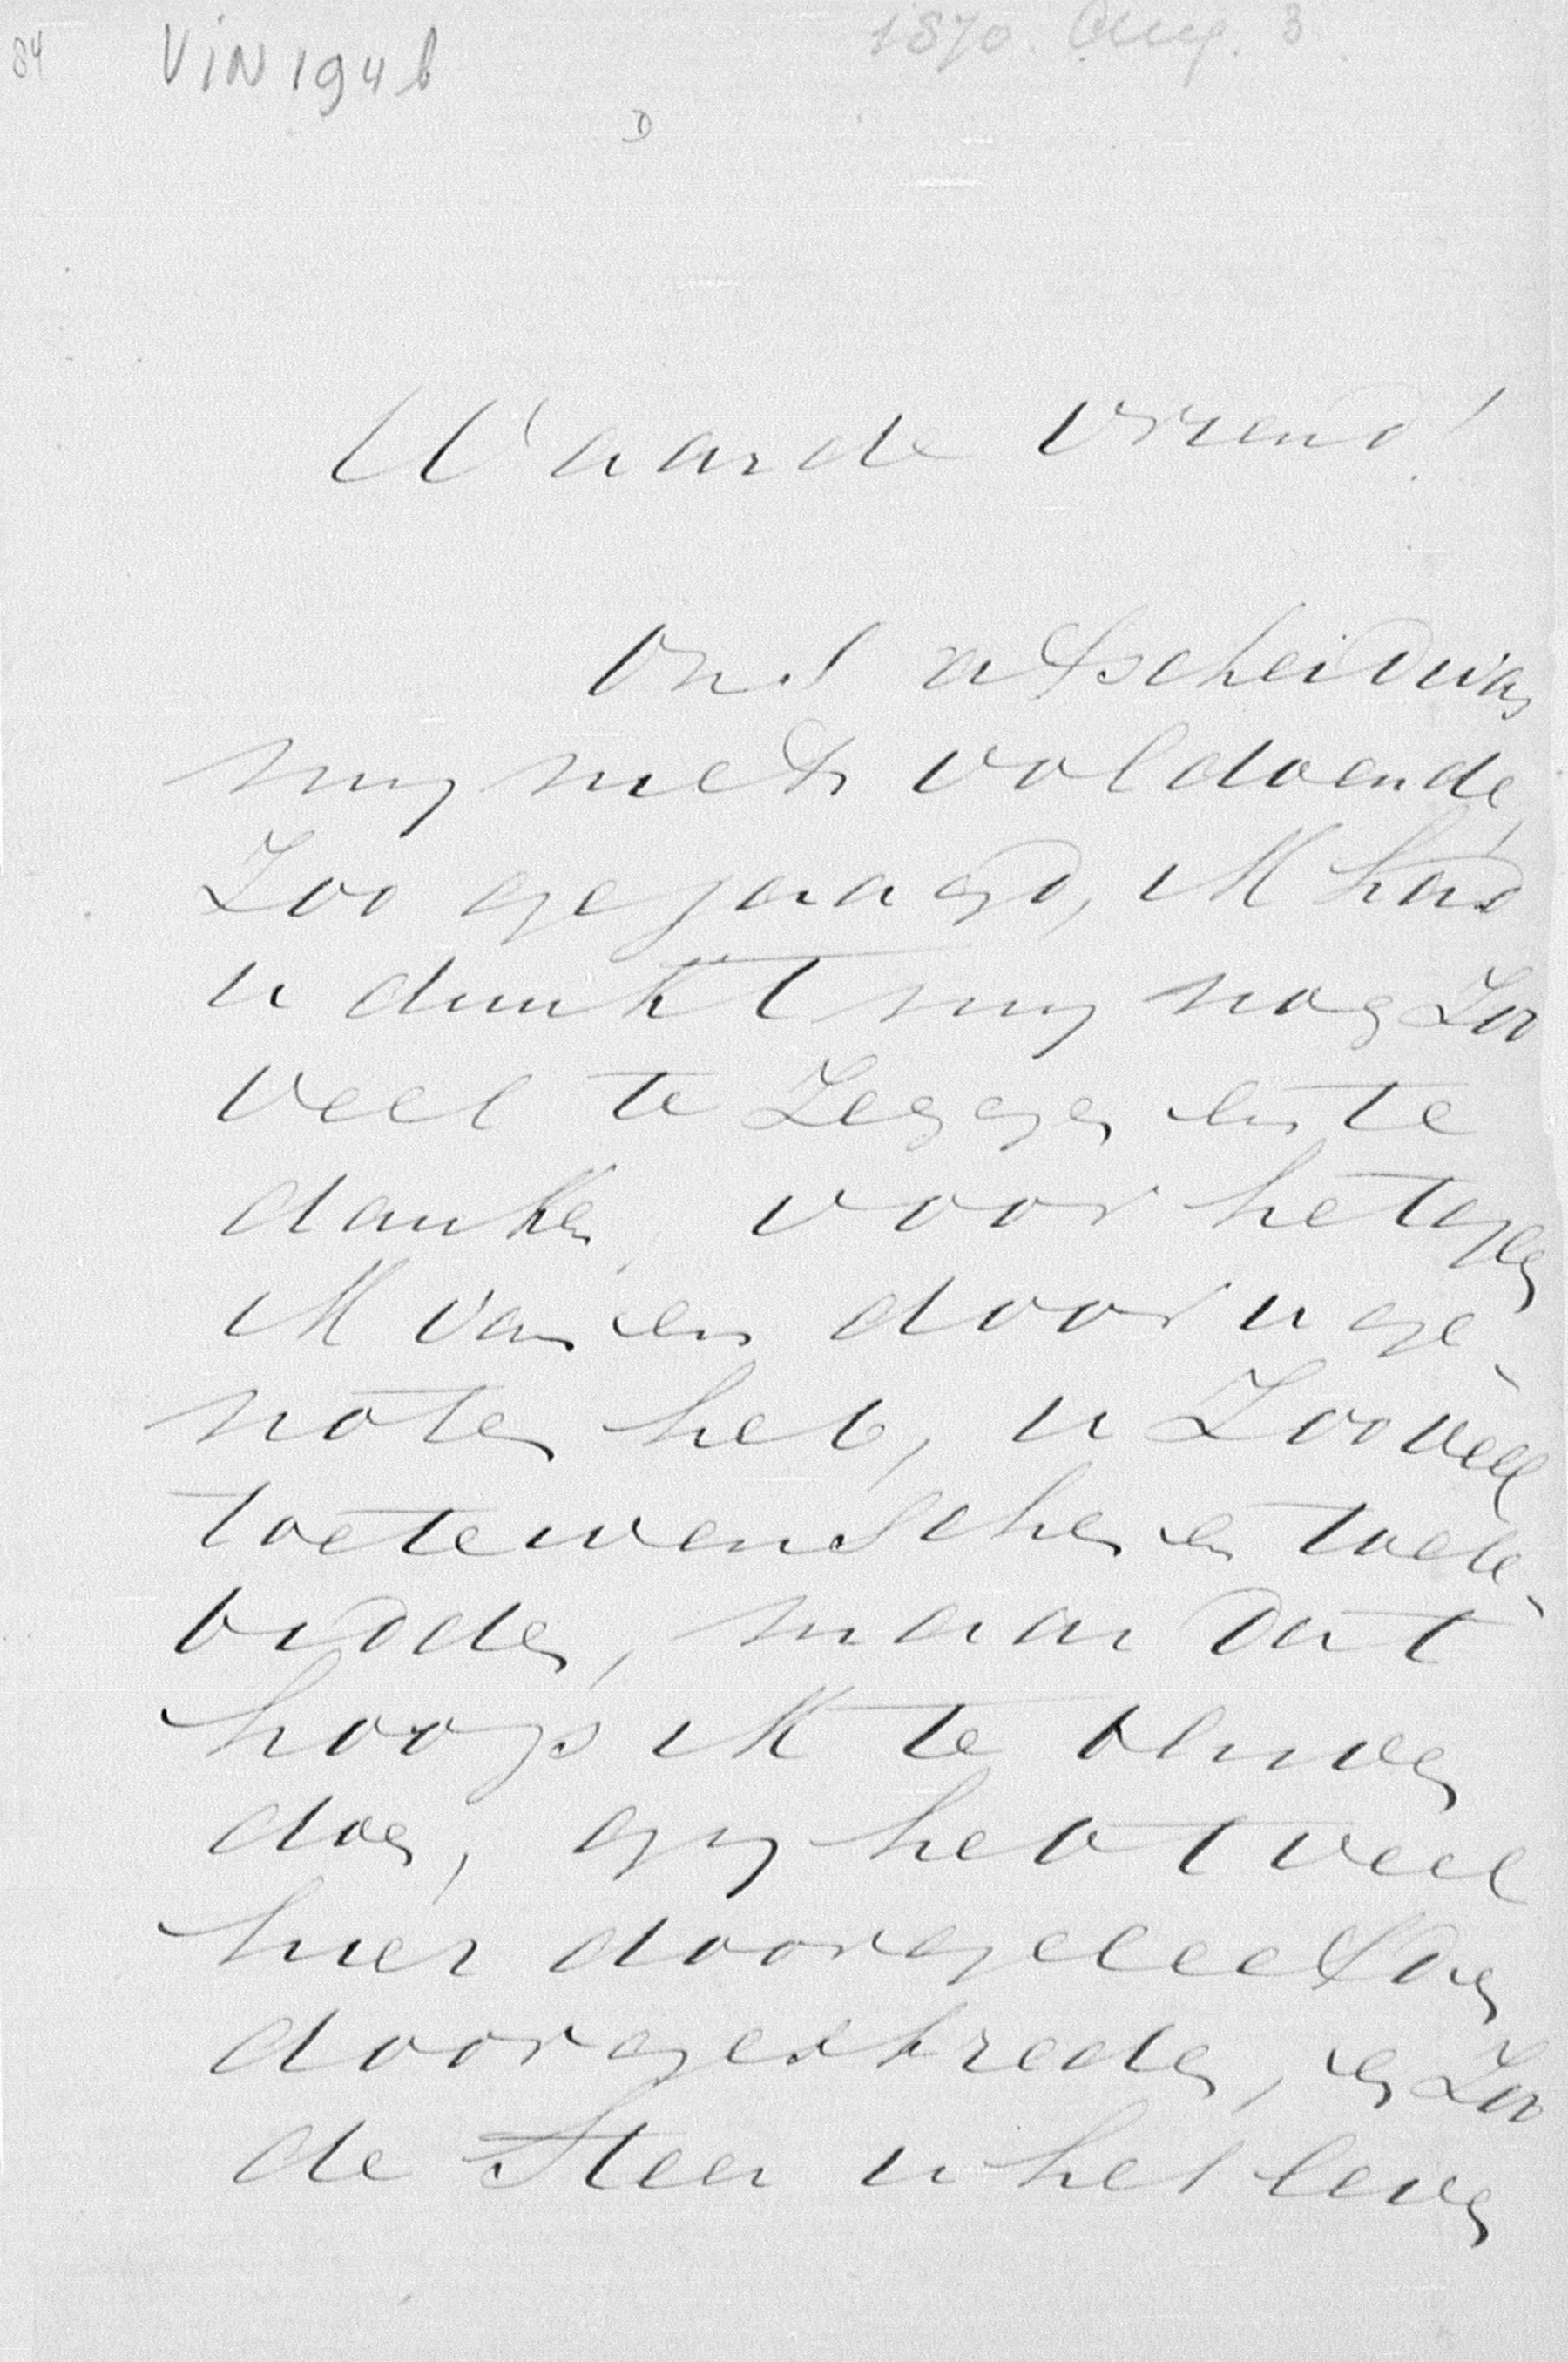 84 VIN 194 b 1870. Aug. 3
D
Waarde Vriend!
Ons afscheid was
my niets voldoende,
Zoo gejaagd, ik had
u dunkt my nog Zoo
veel te Zeggen en te
danken voor hetgeen
ik van en door u ge-
noten heb, u Zooveel
toetewenschen en toete-
bidden, maar dat
hoop ik te blyven
doen, gy hebt veel
hier doorgeleefd en
doorgestreden, en Zoo
de Heer u het leven